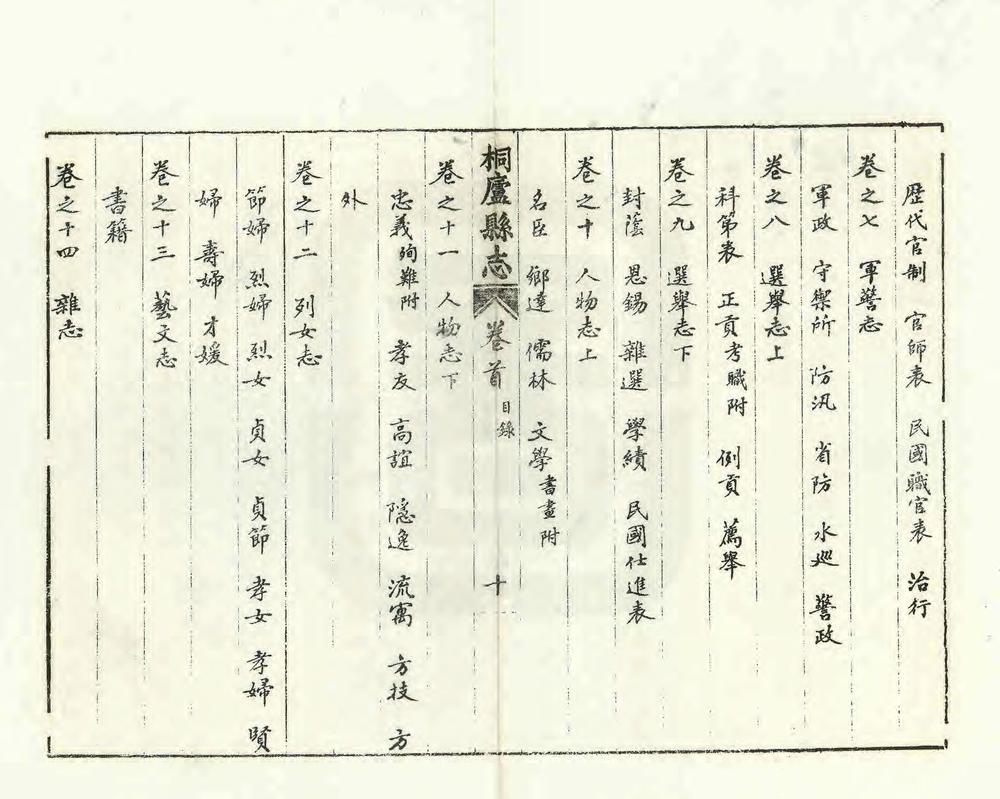 歷代官制 官師表 民國職官表 治行
卷之七 軍警志
軍政 守禦所 防汛 省防 水巡 警政
卷之八 選舉志上
科第表 正貢考職附 例貢 薦舉
卷之九 選舉志下
封蔭 恩錫 雜選 學績 民國仕進表
卷之十 人物志上
名臣 鄉達 儒林 文學書畫附
桐廬縣志 卷首 目錄 十
卷之十一 人物志下
忠義殉難附 孝友 高誼 隱逸 流寓 方技 方
外
卷之十二 列女志
節婦 烈婦 烈女 貞女 貞節 孝女 孝婦 賢
婦 壽婦 才媛
卷之十三 藝文志
書籍
卷之十四 雜志